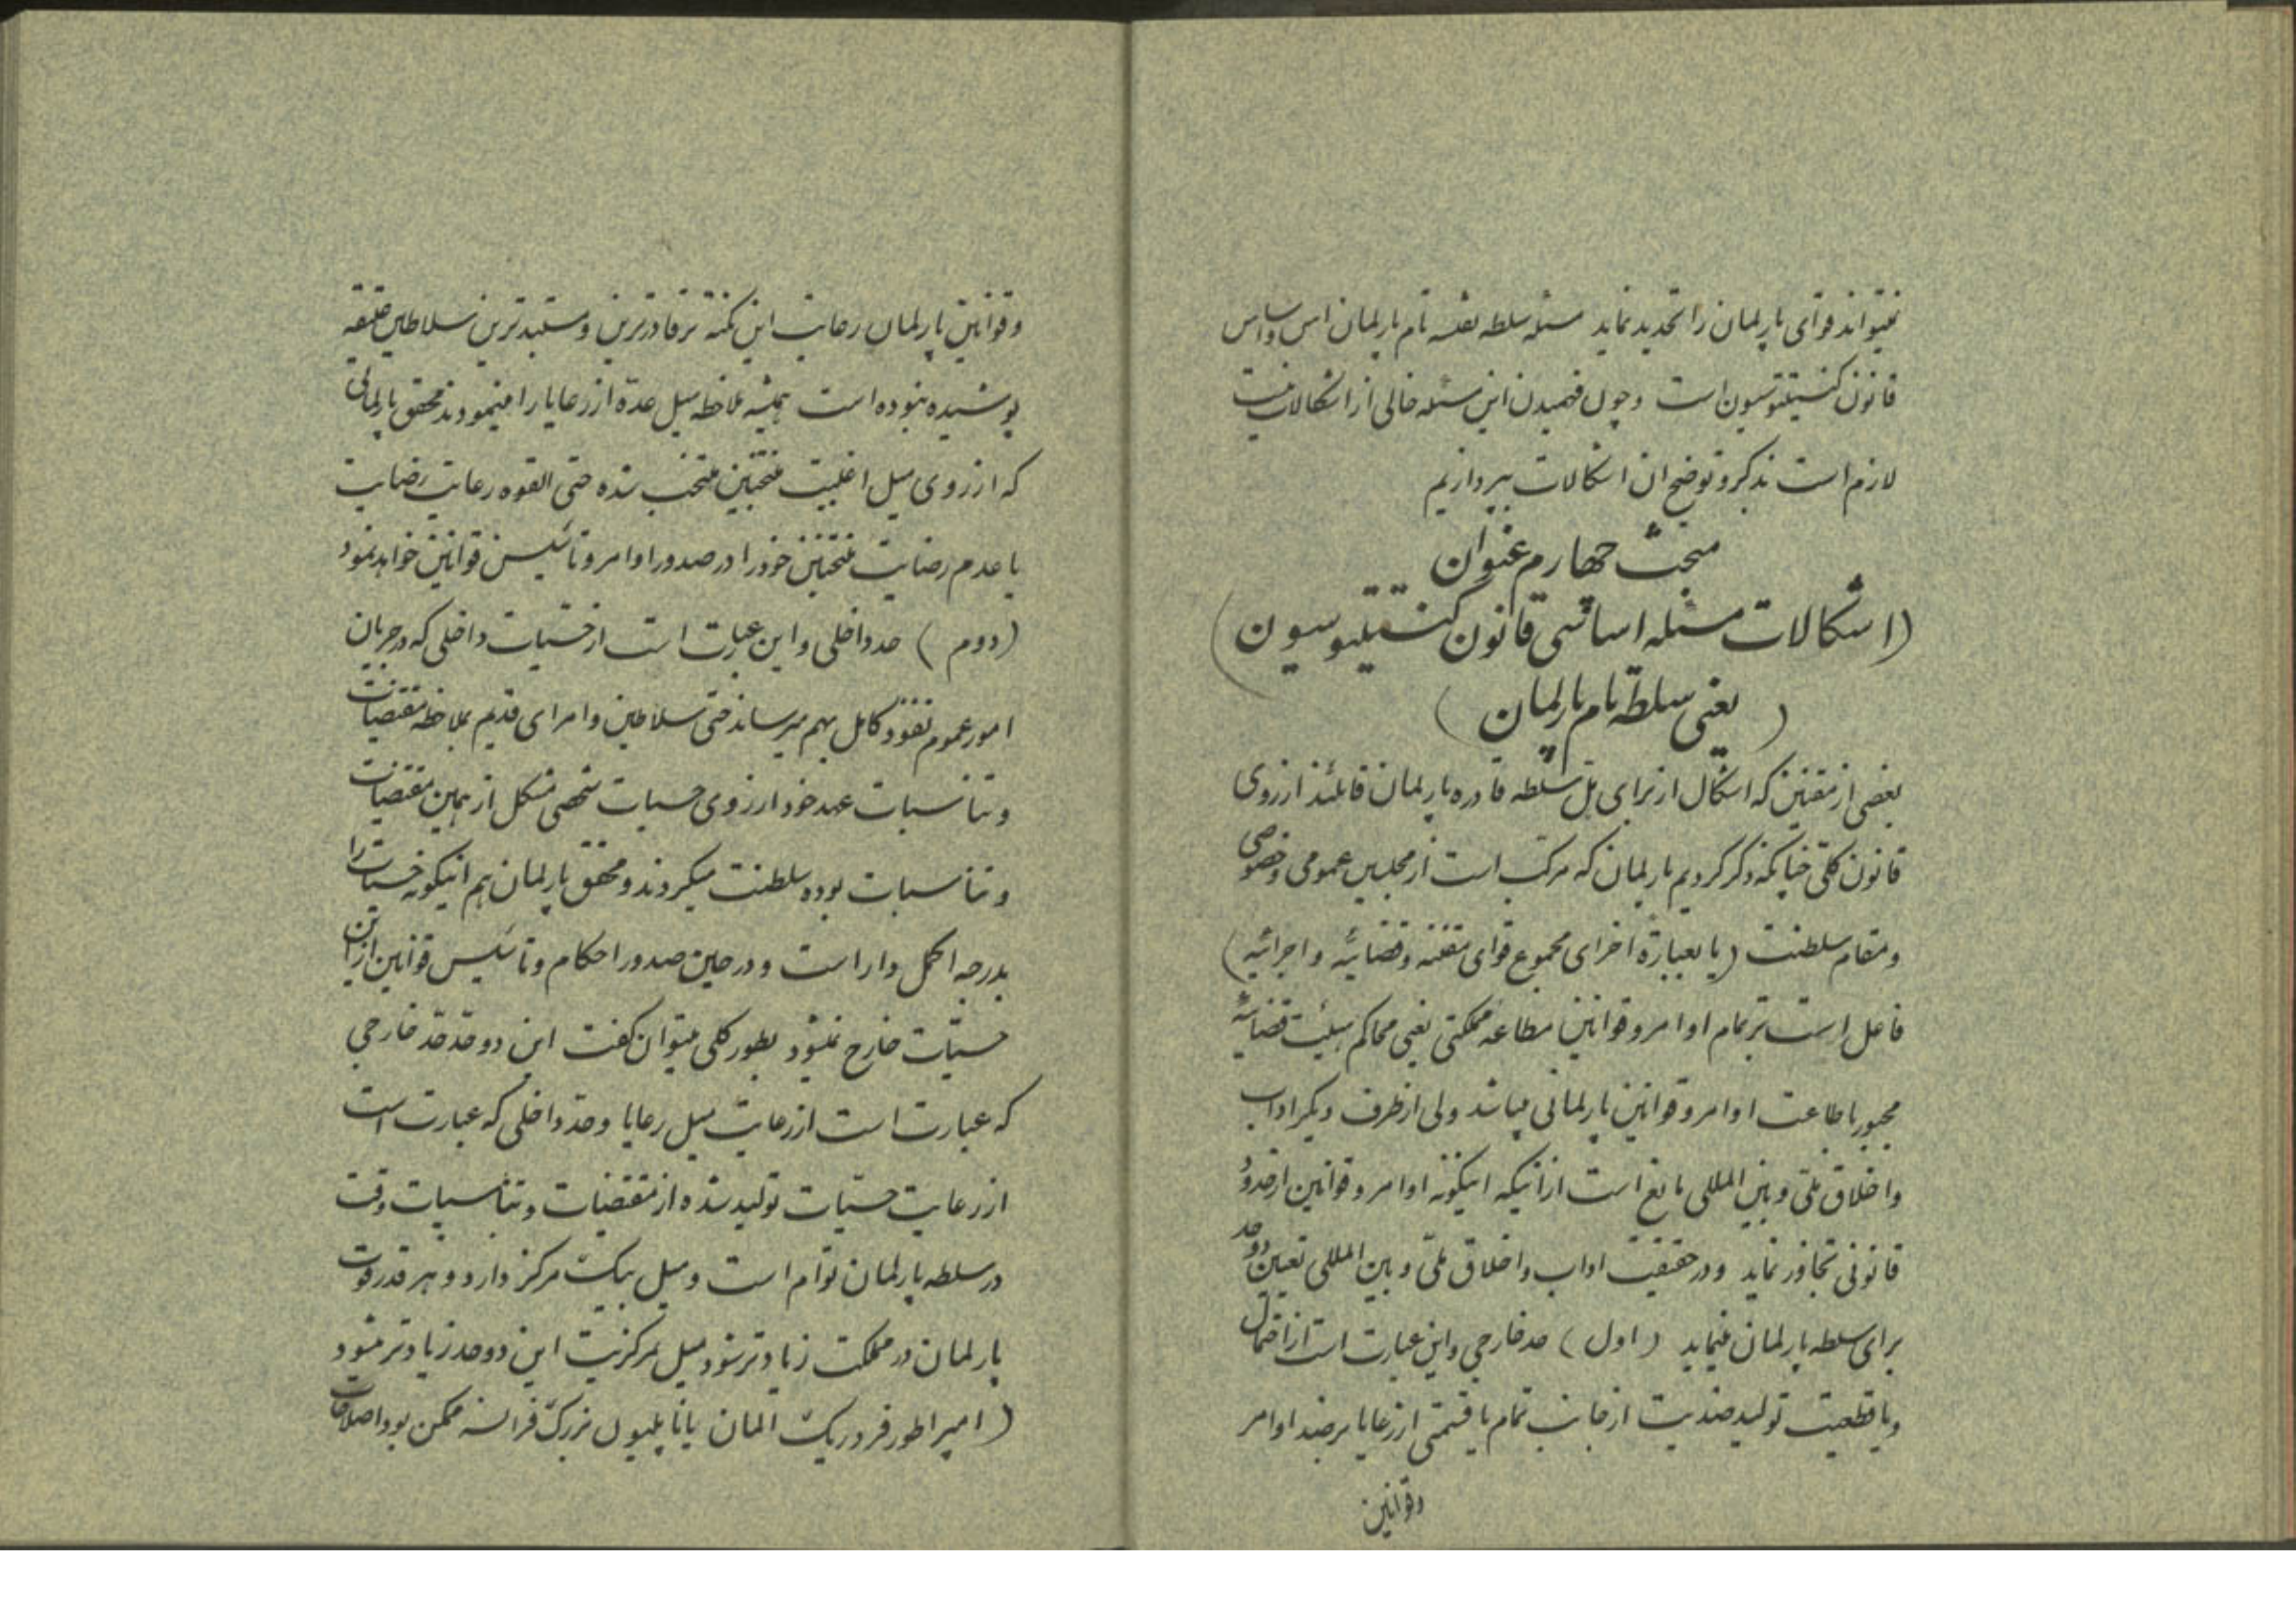 نمیتواند قوای پارلمان را تحدید نماید مسئله سلطه مقننه تام پارلمان اس و اساس
قانون کنستیتوسیون است و چون فهمیدن این مسئله خالی از اشکالات نیست
لازم است بذکر و توضیح ان اشکالات بپردازیم
مبحث چهارم عنوان
(اشکالات مسئله اساسی قانون کنستیتیوسیون)
(یعنی سلطه تام پارلمان)
بعضی از مقننین که اشکال از برای سلطه قادره پارلمان قائلند از روی
قانون کلی چنانکه ذکر کردیم پارلمان که مرکب است از مجلسین عمومی و خصوصی
و مقام سلطنت (یا بعبارة اخرای مجموع قوای مقننه و قضائیه و اجرائیه)
فاعل است بر تمام اوامر و قوانین مطاعه مملکتی یعنی محاکم هیئت قضائیه
مجبور باطاعت اوامر و قوانین پارلمانی میباشد ولی از طرف دیگر اداب
و اخلاق ملی و بین المللی مانع است از انیکه اینگونه اوامر و قوانین از حدود
قانونی تجاوز نماید و در حقیقت اداب و اخلاق ملی و بین المللی تعیین دو حد
برای سلطه پارلمان مینماید (اول) حد خارجی و این عبارت است از احتمال
و یا قطعیت تولید ضدیت از جانب تمام یا قسمتی از رعایا بر ضد اوامر
وقوانین
وقوانین پارلمان رعایت این نکته بر قادرترین و مستبدترین سلاطین
پوشیده نبوده است همیشه ملاحظه میل عدة از رعایا را مینمودند محقق پارلمانی
که از روی میل اغلبیت منتخبین منتخب شده حتی القوه رعایت رضایت
یا عدم رضایت منتخبین خود را در صدور اوامر و تأسیس قوانین خواهد نمود
(دوم) حد داخلی و این عبارت است از حسیات داخلی که در جریان
امور عموم نفوذ کامل بهم میرساند حتی سلاطین و امرای قدیم بملاحظه مقتضیات
و تناسبات عهد خود از روی حسیات شخصی متشکل از همین مقتضیات
و تناسبات بوده سلطنت میکردند و محقق پارلمان هم اینگونه حسیات را
بدرجه اکمل دارا است و در حین صدور احکام و تأسیس قوانین از این
حسیات خارج نمیشود بطور کلی میتوان گفت این دو حد حد خارجی
که عبارت است از رعایت میل رعایا و حد داخلی که عبارت است
از رعایت حسیات تولید شده از مقتضیات و تناسبات وقت
در سلطه پارلمان توأم است و میل بیک مرکز دارد و هر قدر قوت
پارلمان در مملکت زیادتر شود میل مرکزیت این دو حد زیادتر میشود
(امپراطور فردریک المان یا ناپلیون بزرگ فرانسه ممکن بود اصلاحات